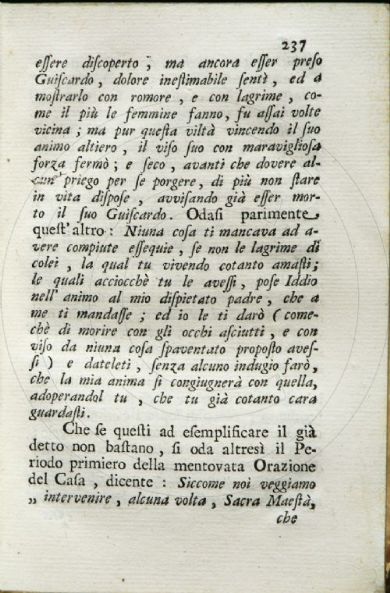 237
essere discoperto ; ma ancora esser preso
Guiscardo , dolore inestimabile sentì , ed a
mostrarlo con romore , e con lagrime , co-
me il più le femmine fanno, fu assai volte
vicina ; ma pur questa viltà vincendo il suo
animo altiero , il viso suo con maravigliosa
forza fermò ; e seco , avanti che dovere al-
cun priego per se porgere, di più non stare
in vita dispose , avvisando già esser mor-
to il suo Guiscardo . Odasi parimente
quest' altro : Niuna cosa ti mancava ad a-
vere compiute essequie , se non le lagrime di
colei , la qual tu vivendo cotanto amasti ;
le quali acciocchè tu le avessi , pose Iddio
nell' animo al mio dispietato padre , che a
me ti mandasse ; ed io le ti darò ( come-
chè di morire con gli occhi asciutti , e con
viso da niuna cosa spaventato proposto aves-
si ) e dateleti , senza alcuno indugio farò,
che la mia anima si congiugnerà con quella,
adoperandol tu , che tu già cotanto cara
guardasti.
Che se questi ad esemplificare il già
detto non bastano , si oda altresì il Pe-
riodo primiero della mentovata Orazione
del Casa , dicente : Siccome noi veggiamo
„ intervenire , alcuna volta , Sacra Maestà,
che